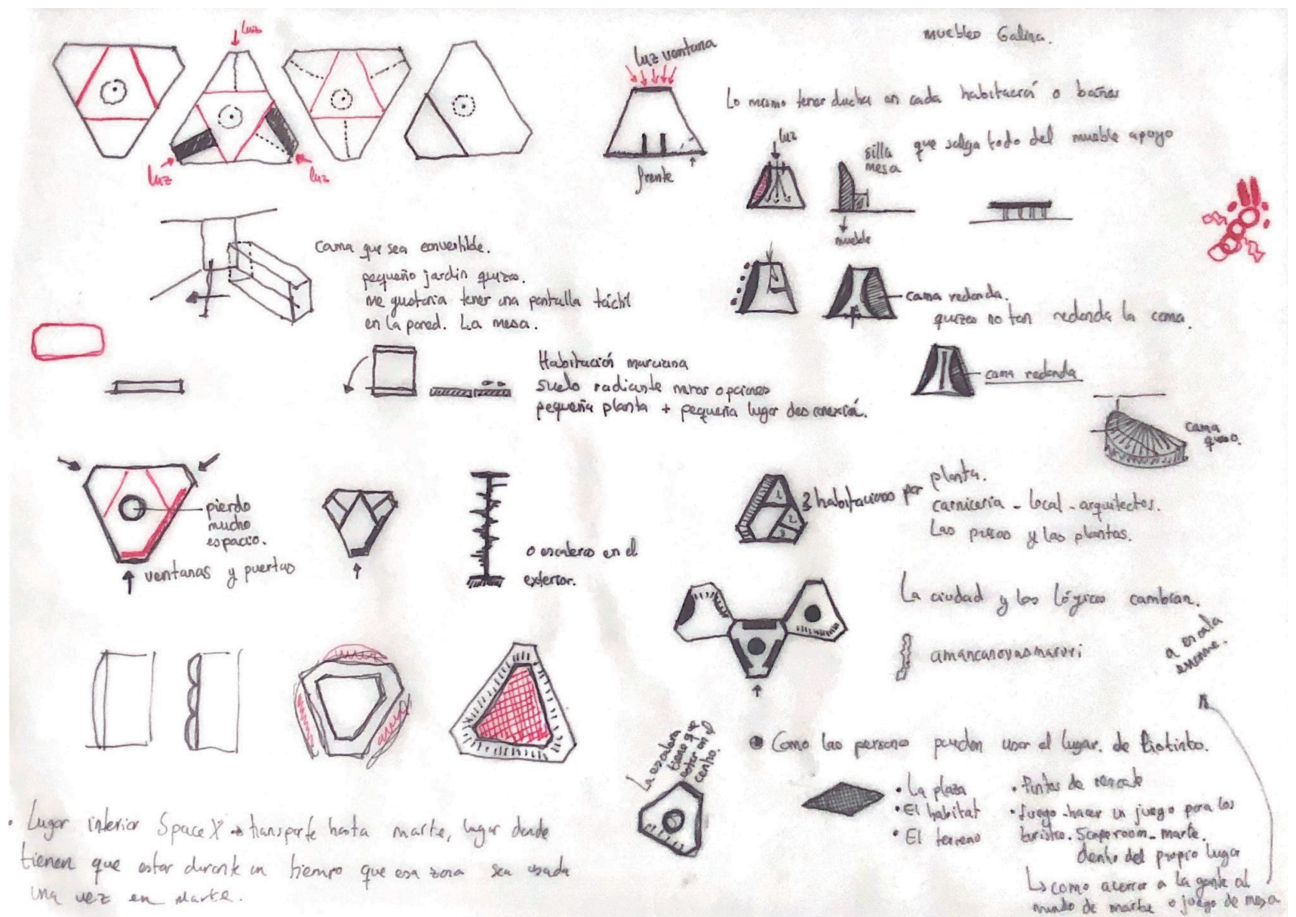 luz
luz
luz
luz ventana
frente
muebles Galina.
Lo mismo tener ducha en cada habitación o baños
que salga todo del mueble apoyo
luz
silla
mesa
mueble
cama que sea convertible.
pequeño jardin quizas.
me gustaria tener una pantalla táctil
en la pared. La mesa.
cama redonda.
quizas no tan redonda la cama.
Habitación marciana
suelo radiante
opciones
pequeña planta + pequeña lugar desconexión.
cama redonda
cama
pierdo
mucho
espacio.
ventanas y puertas
o escaleras en el
exterior.
3 habitaciones por planta.
1
2
3
carniceria - local - arquitectos.
Las presas y las plantas.
La ciudad y las lógicas cambian.
amancanovasmaruri
a escala
enorme.
La escalera
tiene que
estar en el
centro.
Como las persona pueden usar el lugar. de Riotinto.
• La plaza
• El habitat
• El terreno
• Puntos de rescate
• Juego - hacer un juego para los
turistas. Scaperoom - marte.
dentro del propio lugar
↳ como acercar a la gente al
mundo de marte o juego de mesa
• Lugar interior Space X → transporte hasta marte, lugar donde
tienen que estar durante un tiempo que esa zona sea usada
una vez en marte.